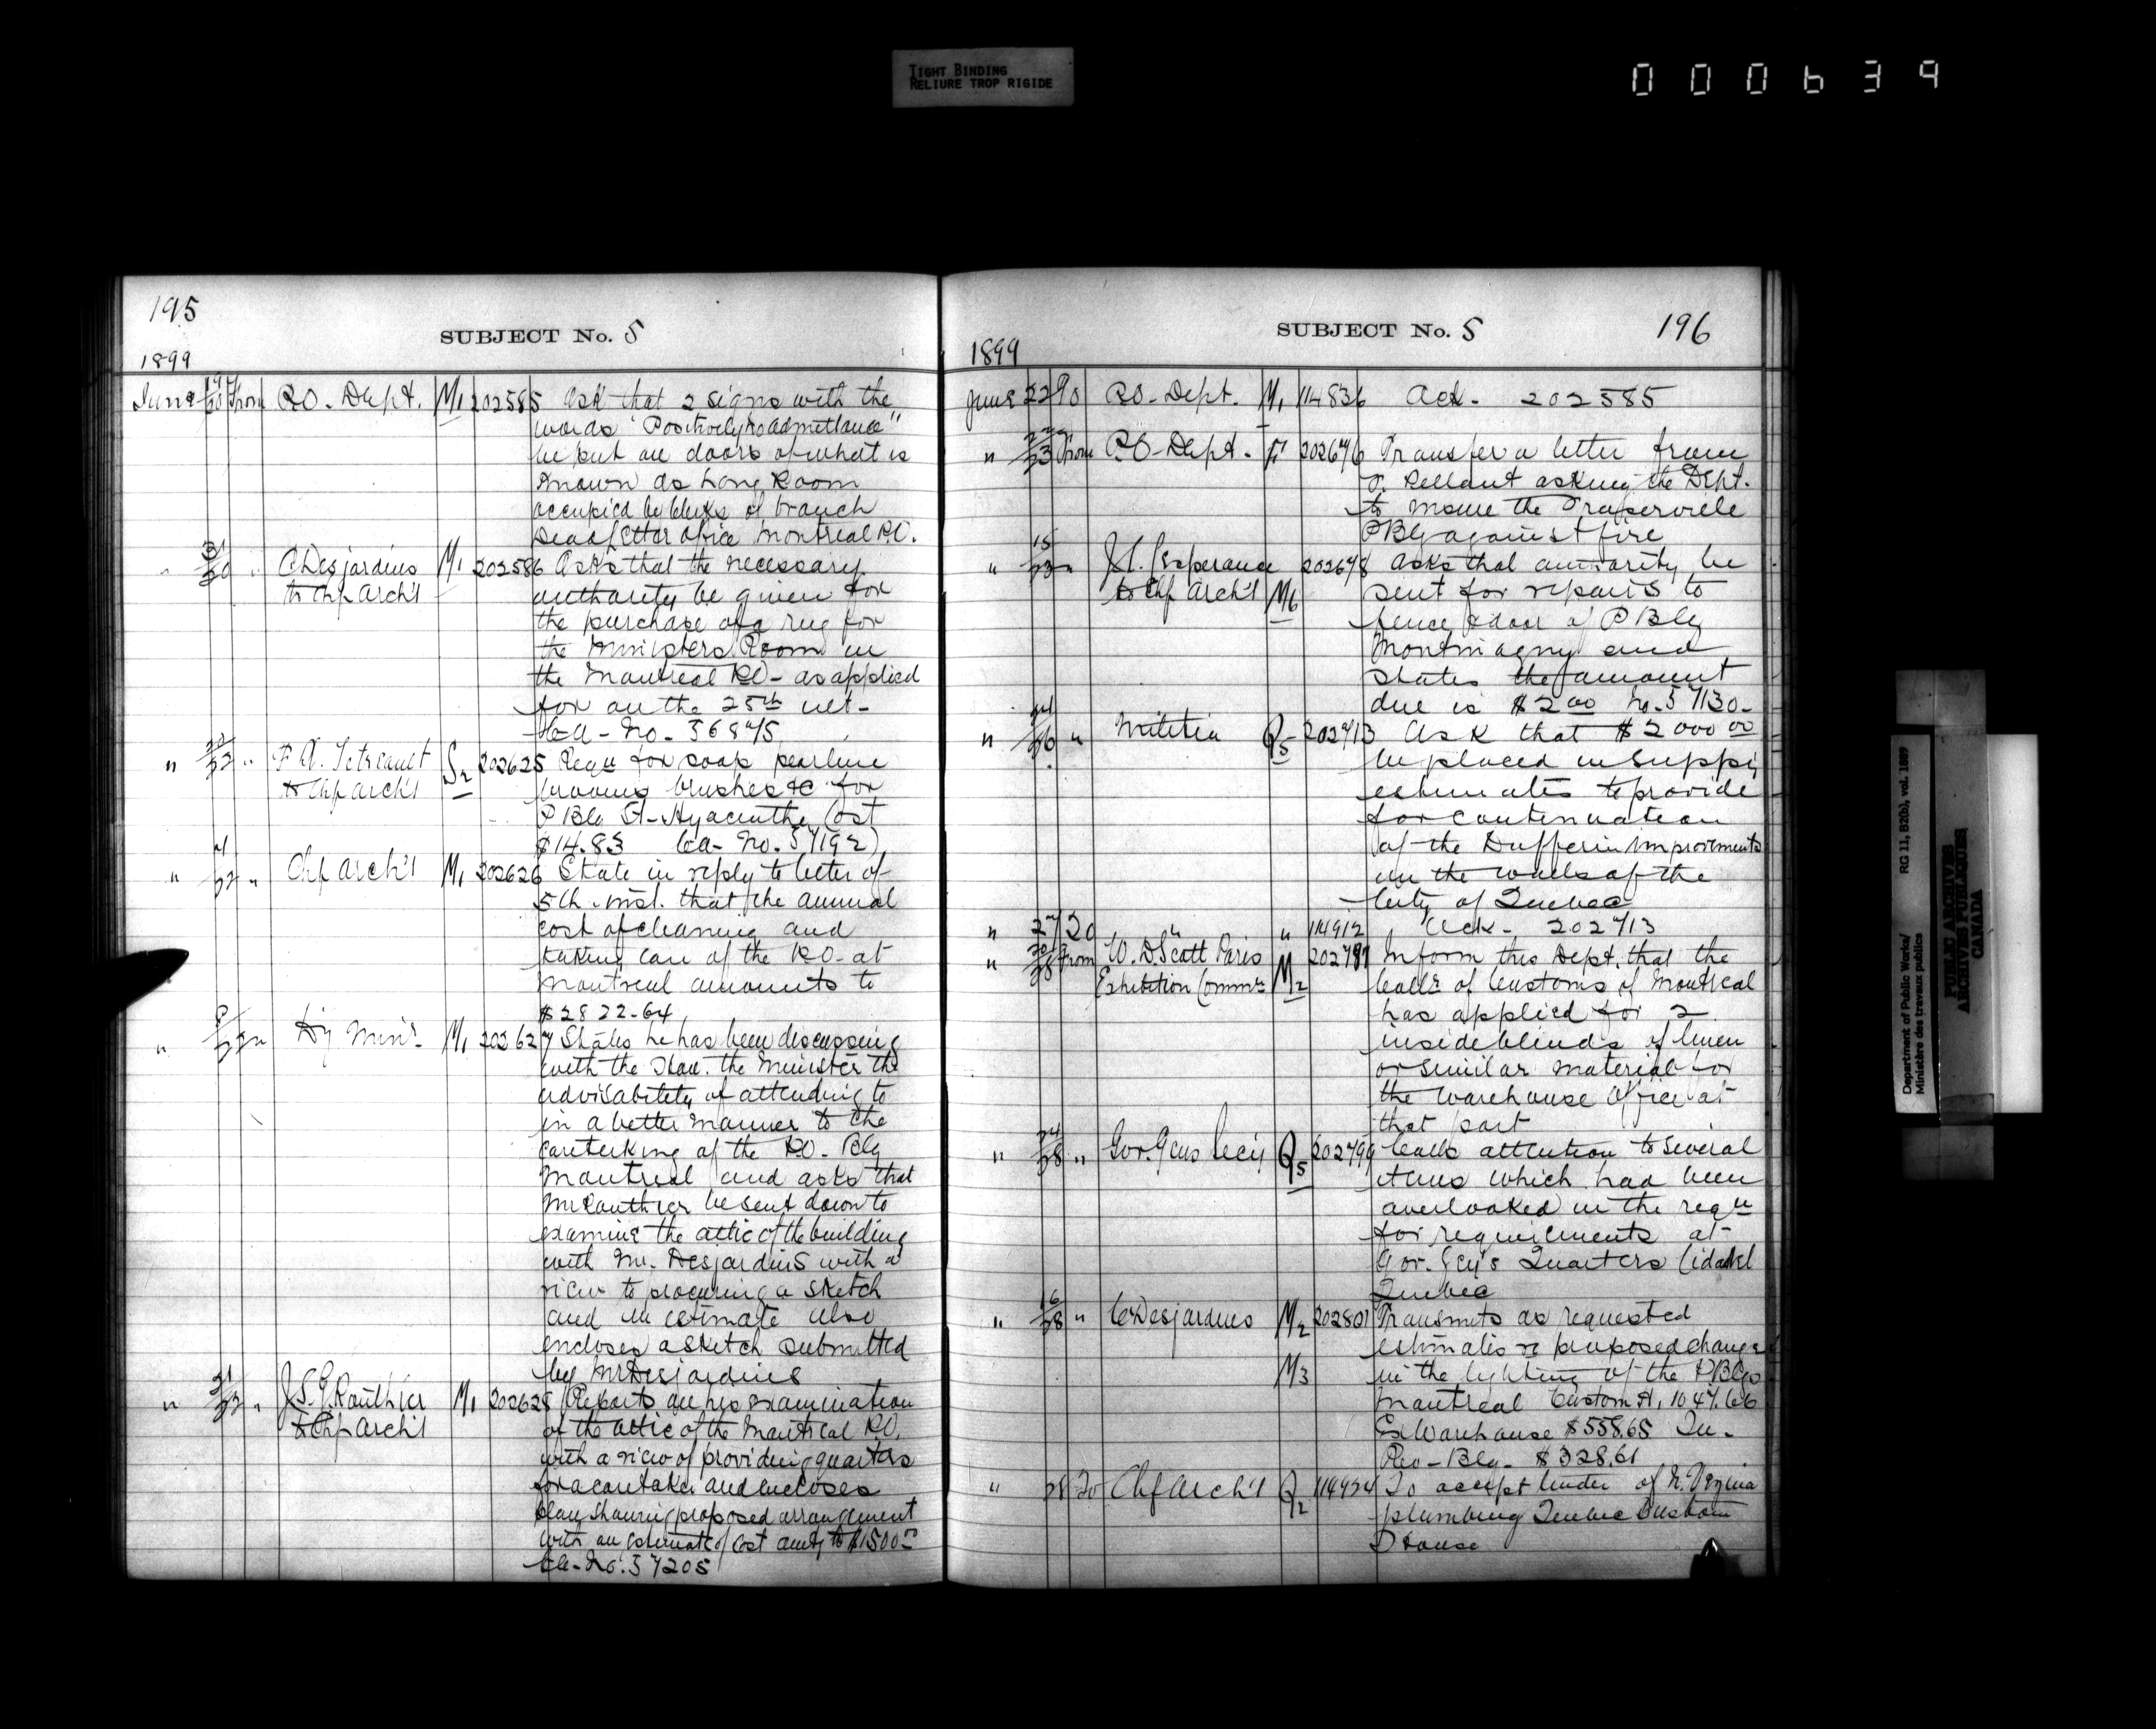 TIGHT BINDING
RELIURE TROP RIGIDE
000639
195
SUBJECT No. 5
1899
June 19/20 From P.O. Dept. M1 202585 Ask that 2 signs with the
words "Positively no admittance"
be put on doors of what is
known as Long Room
occupied by clerks of branch
Dead letter office Montreal P.O.
" /20 " C Desjardins M1 202586 Asks that the necessary
to Chf Arch't authority be given for
the purchase of a rug for
the Ministers Room in
the Montreal P.O. - as applied
for on the 25th ult -
Ca - No. 56875
" /22 " F. A. to Chf Arch't S2 202625 Requ for soap pearline
brooms brushes &c for
P Blg St-Hyacinthe Cost
$14.83 Ca- No. 57192
" /22 " Chf Arch't M1 202626 State in reply to letter of
5th inst. that the annual
cost of cleaning and
taking care of the P.O. at
Montreal amounts to
$2822.64
" 8/22 " Dy Minr M1 202627 States he has been discussing
with the Hon. the Minister the
advisability of attending to
in a better manner to the
caretaking of the P.O. Blg
Montreal and asks that
Mr Rauthier be sent down to
examine the attic of the building
with Mr. Desjardins with a
view to procuring a sketch
and an estimate also
encloses a sketch submitted
by Mr Desjardins
" 21/22 " J.S.G. Rauthier M1 202628 Reports on his examination
to Chf Arch't of the attic of the Montreal P.O.
with a view of providing quarters
for a caretaker and encloses
plan showing proposed arrangement
with an estimate of cost amtg to $1500.00
Ca - No. 57205
SUBJECT No. 5
196
1899
June 22 To P.O. Dept. M1 114836 Ack - 202585
" /23 From P.O. Dept. 202676 Transfer a letter from
asking the Dept.
to insure the
P Blg against fire
" 15/23 " Lesperance 202678 Asks that authority be
to Chf Arch't M6 sent for repairs to
fence & door of P Blg
Montmagny and
states the amount
due is $2.00 No. 57130 -
" 24/26 " Militia Q5 202713 Ask that $2000.00
be placed in Suppy
estimates to provide
for continuation
of the Dufferin improvements
on the walls of the
City of Quebec
" 27 To " " 114912 Ack - 202713
" 20/28 From W. D. Scott Paris M2 202797 Inform this Dept. that the
Exhibition Commr Collr of Customs of Montreal
has applied for 2
inside blinds of linen
or similar material for
the warehouse office at
that port
" 24/28 " Gov. Gens Secy Q5 202799 Calls attention to several
items which had been
overlooked in the requ
for requirements at
Gov. Gen's Quarters Citadel
Quebec
" 16/28 " C Desjardins M2 202801 Transmits as requested
estimates re proposed change
M3 in the lighting of the P Blgs
Montreal Custom H. 1047.66
Ex Warehouse $558.65 In.
Rev - Blg - $328.61
" 28 To Chf Arch't Q2 114924 To accept tender of N. Vezina
plumbing Quebec Custom
House
Department of Public Works/
Ministère des travaux publics
RG 11, B2(b), vol. 1889
PUBLIC ARCHIVES
ARCHIVES PUBLIQUES
CANADA